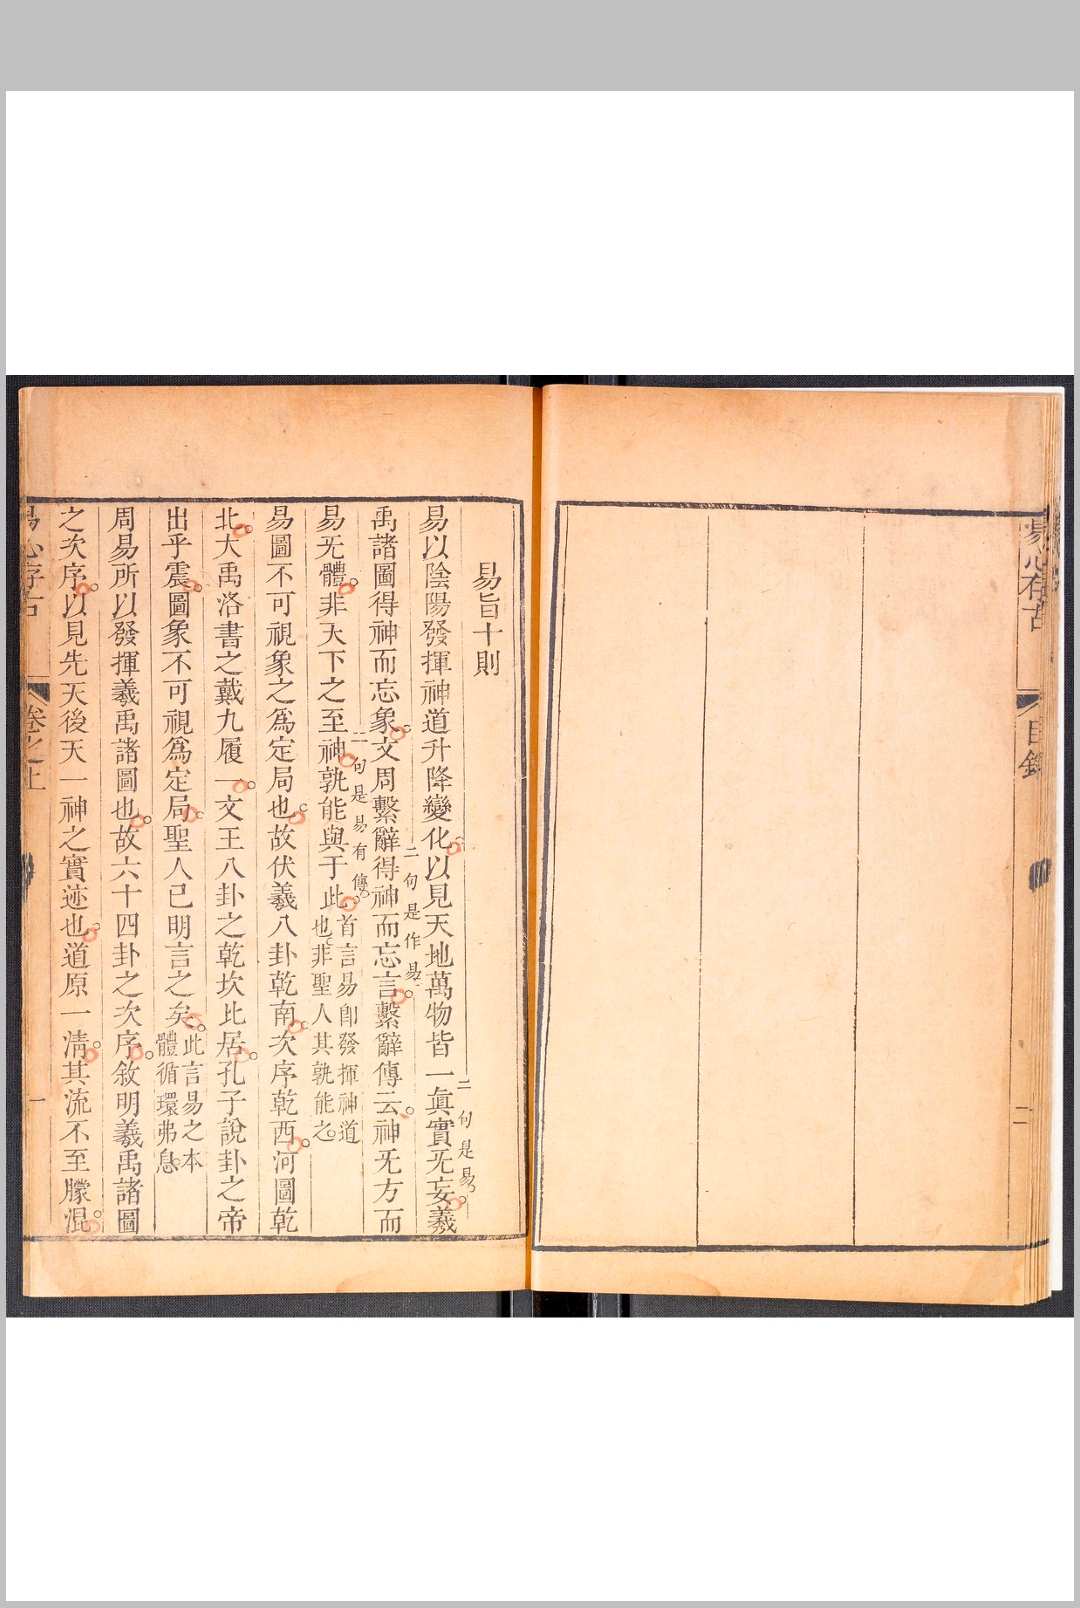 易心存古
目錄
二
易旨十則
易以陰陽發揮神道升降變化以見天地萬物皆一眞實无妄羲
二句是易
禹諸圖得神而忘象文周繫辭得神而忘言繫辭傳云神无方而
二句是作易
易无體非天下之至神孰能與于此首言易卽發揮神道
也非聖人其孰能之
一句是易有傳
易圖不可視象之爲定局也故伏羲八卦乾南次序乾西河圖乾
北大禹洛書之戴九履一文王八卦之乾坎比居孔子說卦之帝
出乎震圖象不可視爲定局聖人已明言之矣此言易之本
體循環弗息
周易所以發揮羲禹諸圖也故六十四卦之次序敘明羲禹諸圖
之次序以見先天後天一神之實迹也道原一淸其流不至朦混
易心存古
卷之上
一